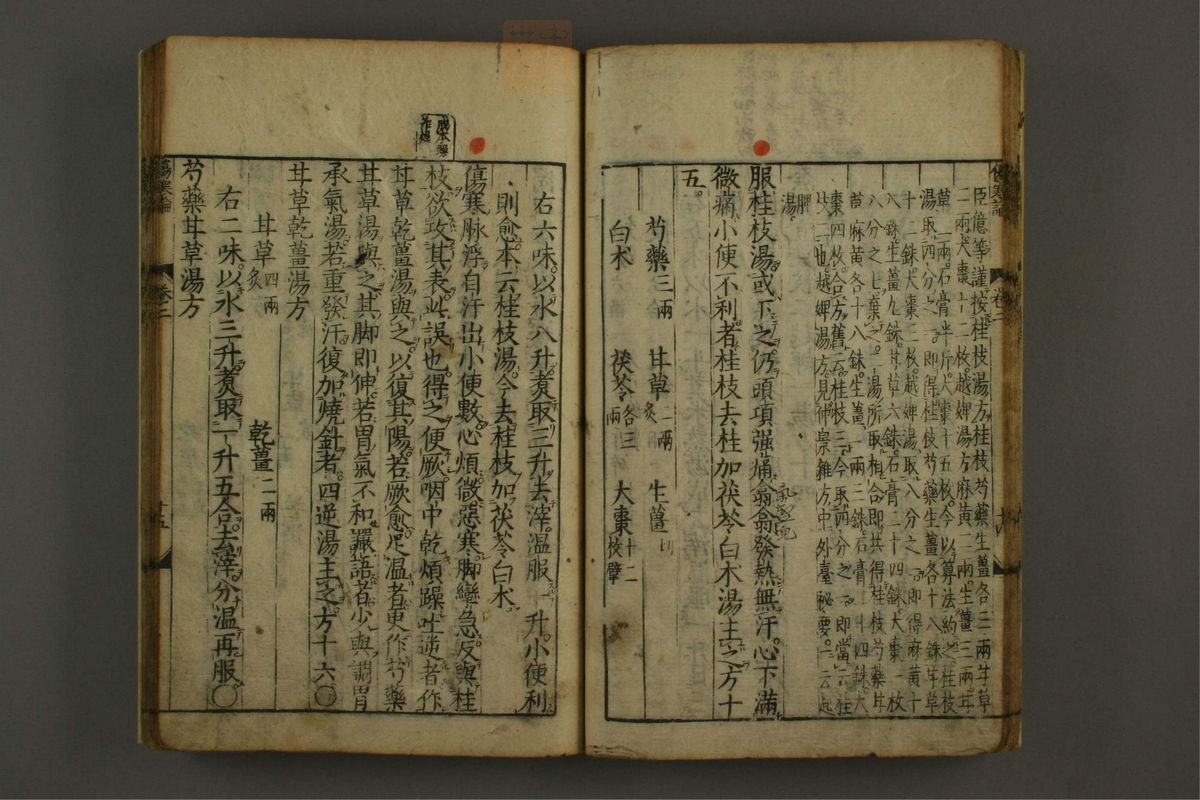 臣億等謹按桂枝湯方桂枝芍藥生薑各三兩甘草
二兩大棗十二枚越婢湯方麻黃二兩生薑三兩甘
草二兩石膏半斤大棗十五枚今以算法約之桂枝
湯取四分之一即得桂枝芍藥生薑各十八銖甘草
十二銖大棗三枚越婢湯取八分之一即得麻黃十
八銖生薑九銖甘草六銖石膏二十四銖大棗一枚
八分之七棄之二湯所取相合即共得桂枝芍藥甘
草麻黃各十八銖生薑一兩三銖石膏二十四銖大
棗四枚合方舊云桂枝三今取四分之一即當云桂
枝二也越婢湯方見仲景雜方中外臺秘要一云起
脾湯
服桂枝湯或下之仍頭項强痛翕翕發熱無汗心下滿
微痛小便不利者桂枝去桂加茯苓白术湯主之方十
五
芍藥三兩 甘草二兩炙 生薑切
白术 茯苓各三兩 大棗十二枚擘
右六味以水八升煮取三升去滓温服一升小便利
則愈本云桂枝湯今去桂枝加茯苓白术
傷寒脉浮自汗出小便數心煩微惡寒脚攣急反與桂
枝欲攻其表此誤也得之便厥咽中乾煩躁吐逆者作
甘草乾薑湯與之以復其陽若厥愈足温者更作芍藥
甘草湯與之其脚即伸若胃氣不和讝語者少與調胃
承氣湯若重發汗復加燒針者四逆湯主之方十六
甘草乾薑湯方
甘草四兩炙 乾薑二兩
右二味以水三升煮取一升五合去滓分温再服
芍藥甘草湯方
傷寒論 卷二 十五